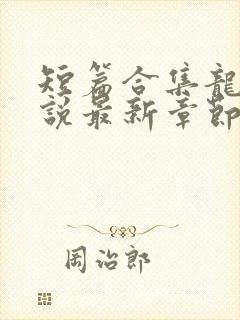 短篇合集龍
說最新章節
岡治郎